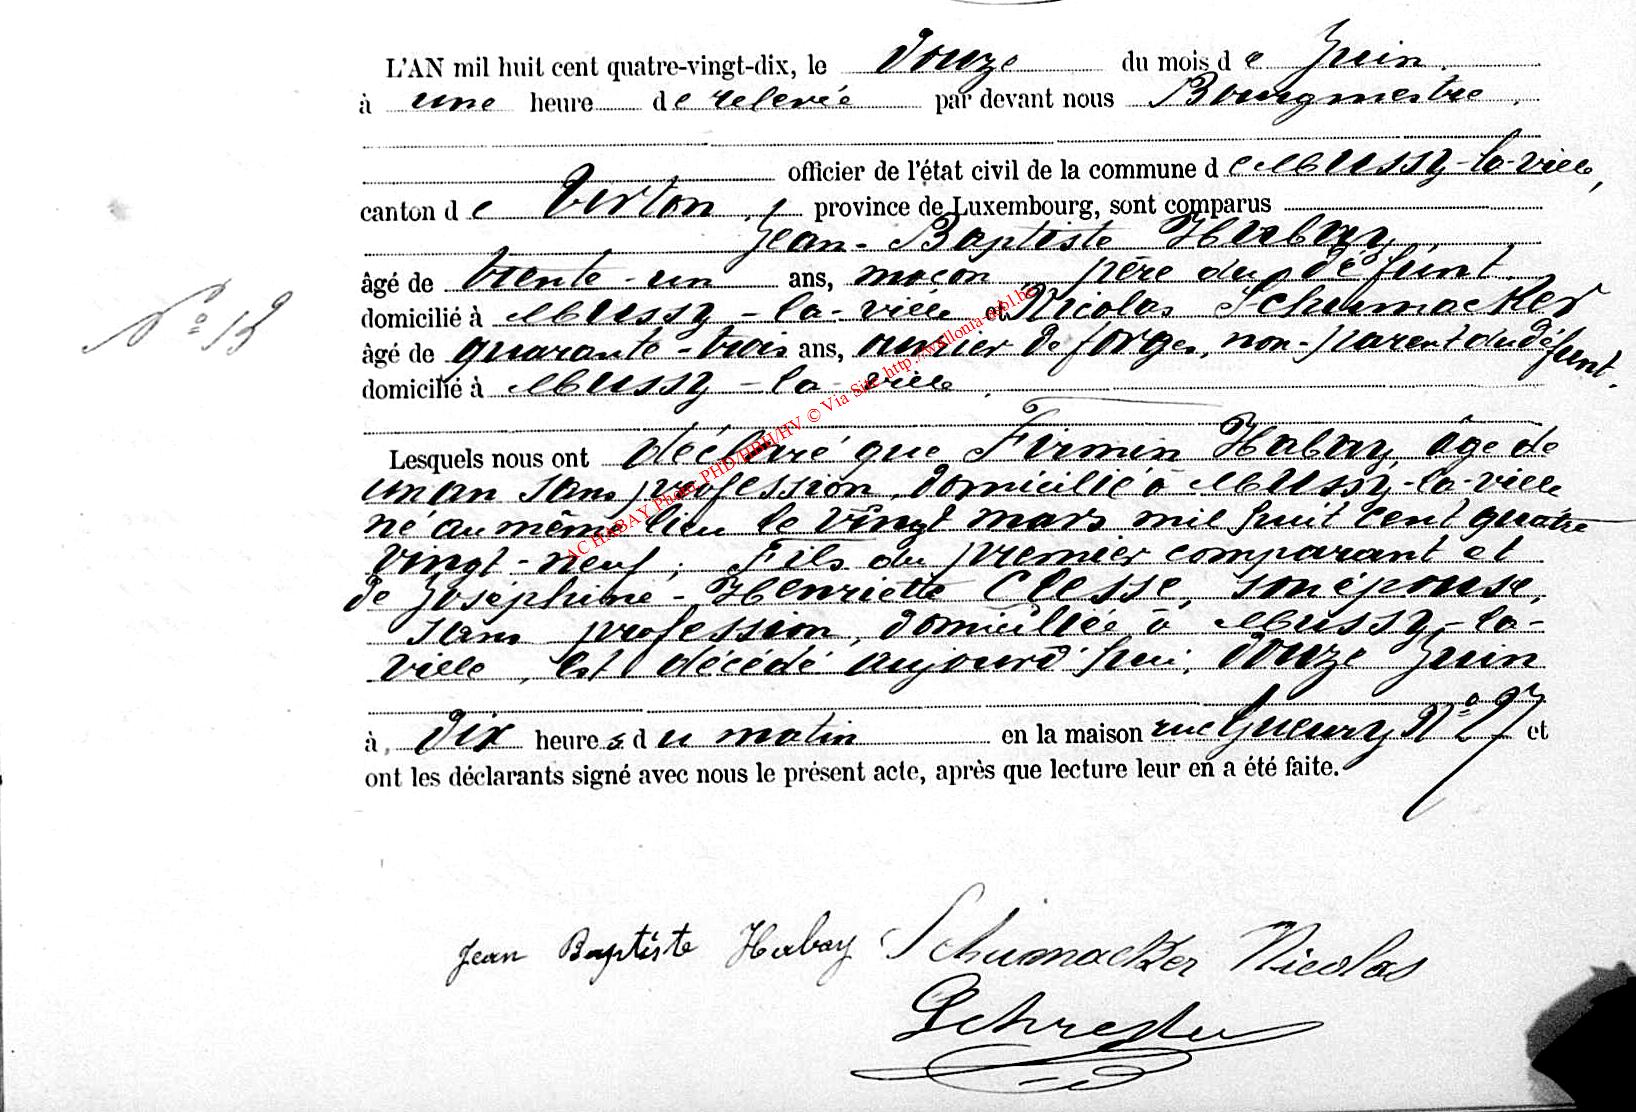 L'AN mil huit cent quatre-vingt-dix, le douze du mois de Juin.
à une heure de relevée par devant nous Bourgmestre,
officier de l'état civil de la commune de Mussy-la-ville,
canton de Virton, province de Luxembourg, sont comparus
Jean-Baptiste Habay,
âgé de trente-un ans, maçon père du défunt,
domicilié à Mussy-la-ville & Nicolas Schumacker
N° 13
âgé de quarante-trois ans, ouvrier de forges, non-parent du défunt.
domicilié à Mussy-la-ville.
Lesquels nous ont déclaré que Firmin Habay, âgé de
un an sans profession, domicilié à Mussy-la-ville
né au même lieu le vingt mars mil huit cent quatre
vingt-neuf; Fils du premier comparant et
de Joséphine-Henriette Clesse, son épouse,
sans profession, domiciliée à Mussy-la-
ville, est décédé aujourd'hui, douze Juin
à dix heures du matin en la maison rue N° 27 et
ont les déclarants signé avec nous le présent acte, après que lecture leur en a été faite.
AC HABAY Photo PHD/HBH/HV © Via Site http://wallonia-asbl.be
Jean Baptiste Habay Schumacker Nicolas